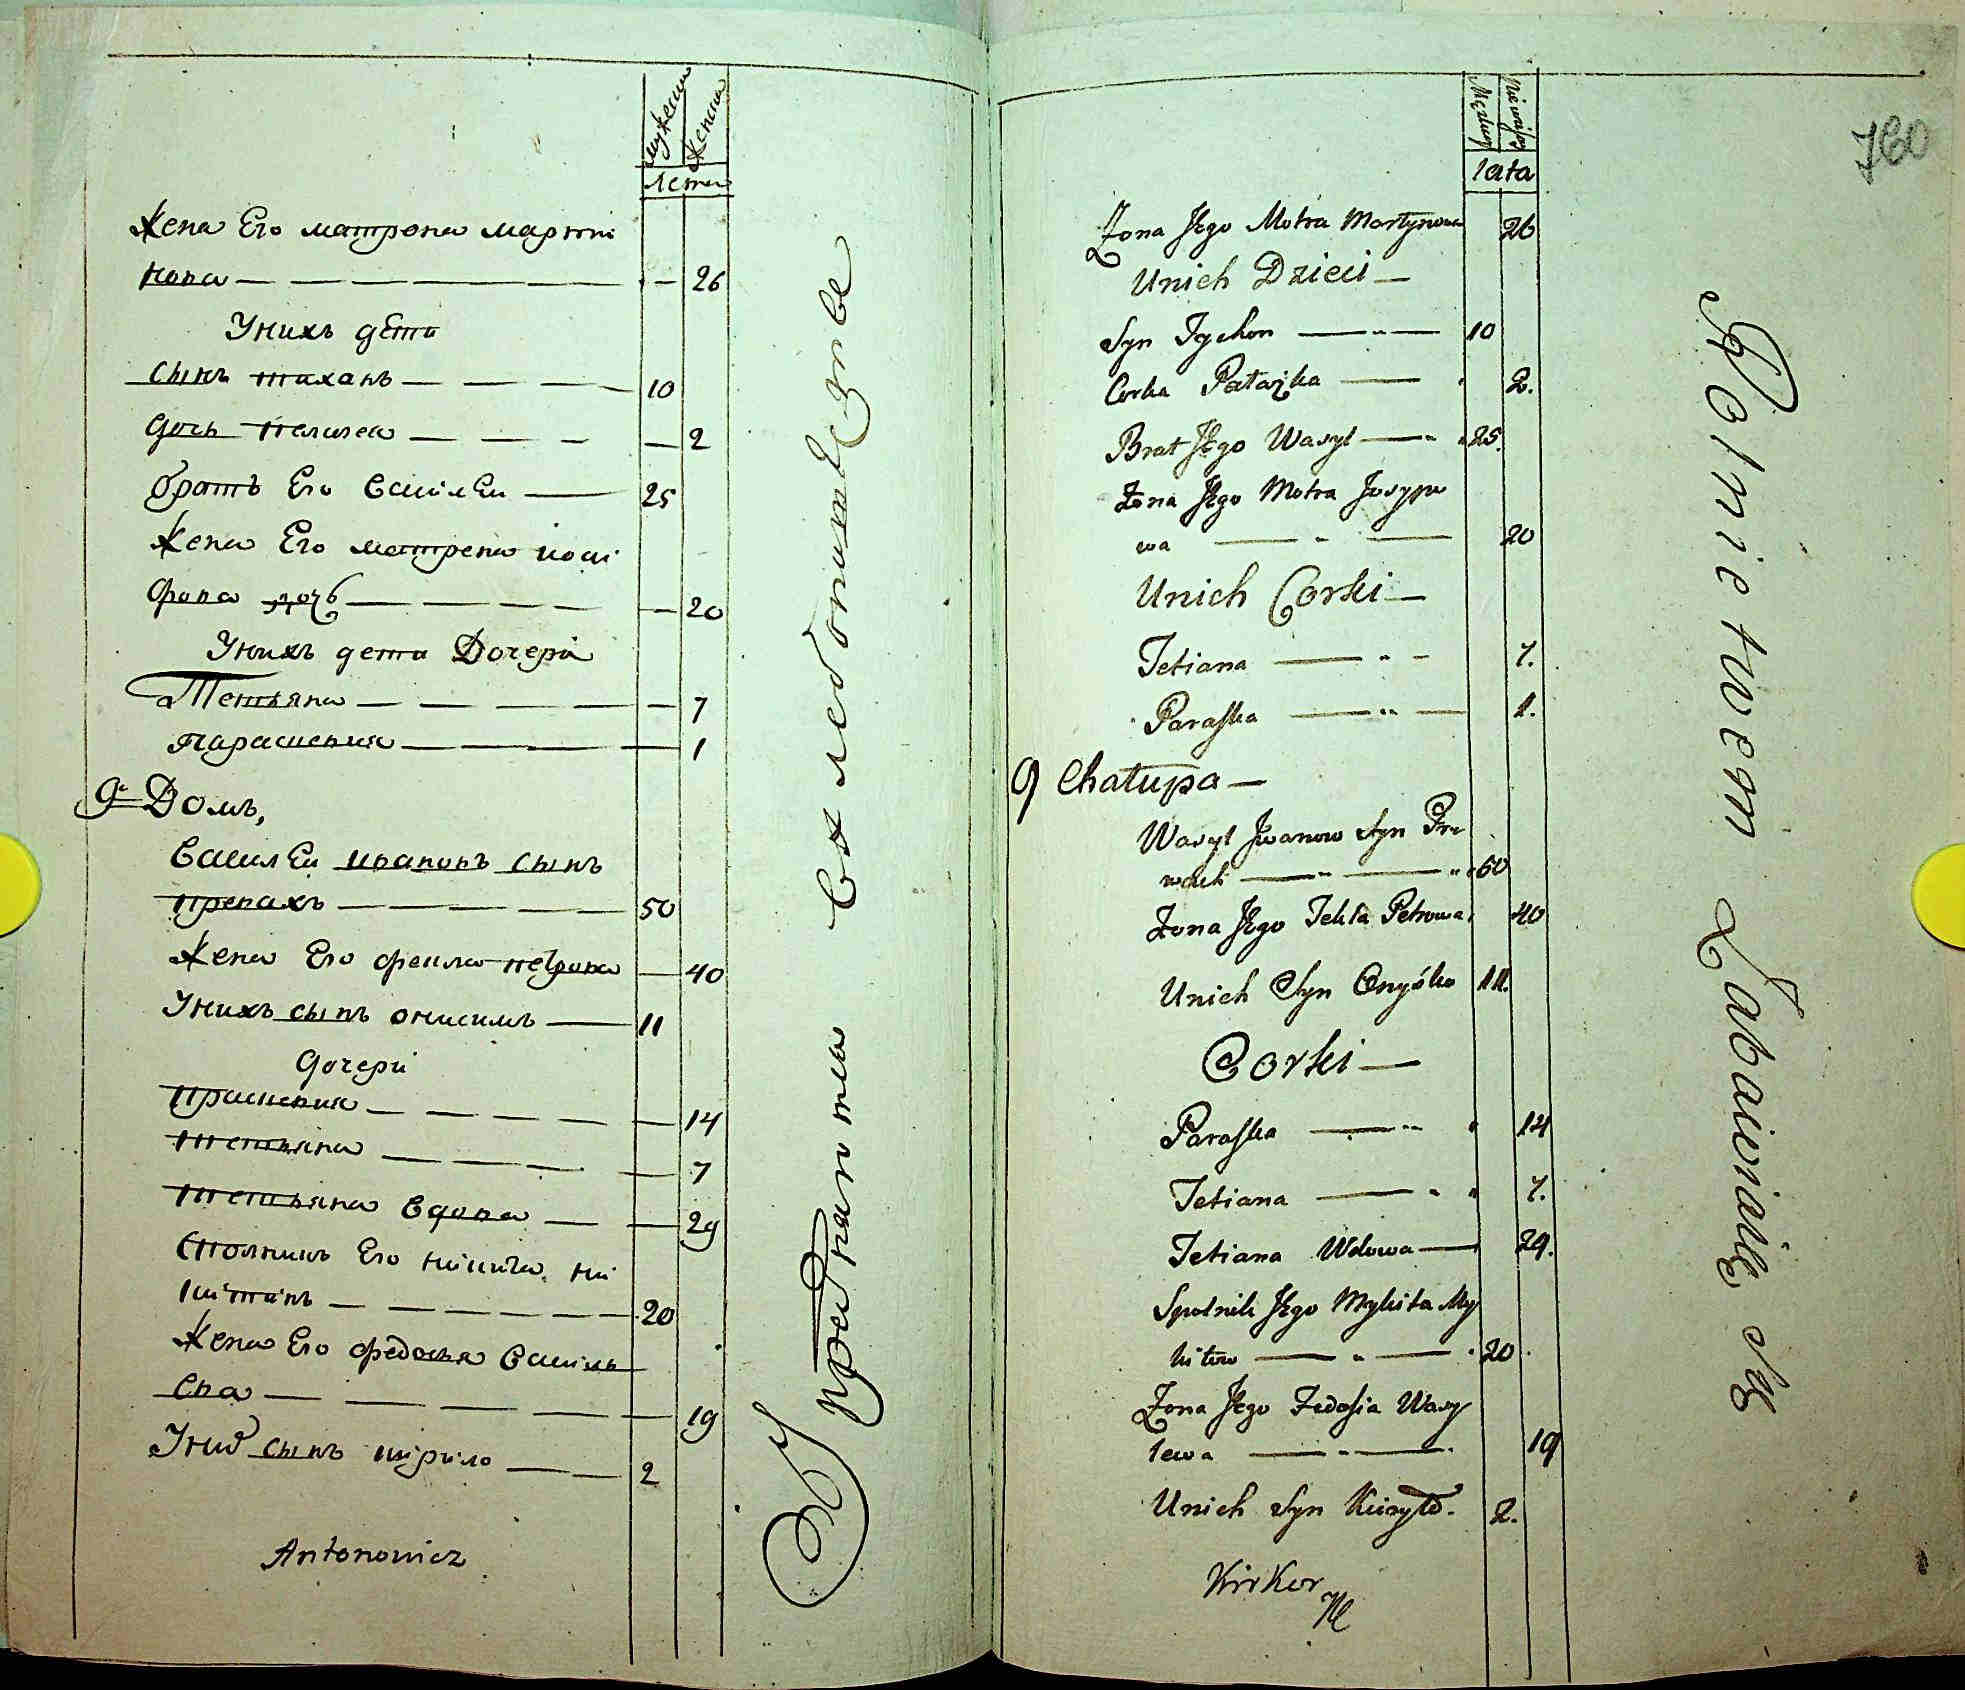 мужеск женска
лета
жена Его матрона марти
нова — — — — — — 26
Унихъ дети
сынъ тихонъ — — — — 10
дочь пелагея — — — — 2
братъ Его василеи — 25
жена Его матрена иоси
фова — — — — — 20
Унихъ дети Дочери
Тетьяна — — — — 7
Парасковия — — — — 1
9й Домъ,
василеи ивановъ сынъ
— — — — — 50
жена Его фекла петрова — 40
Унихъ сынъ онисимъ — 11
дочери
прасковия — — — — 14
тетьяна — — — — 7
тетьяна вдова — — 29
Его никита ни
китинъ — — — — — 20
жена Его федосья василь
ева — — — — — 19
Унихъ сынъ кирило — — 2
Antonowicz
въ
Męskiey
lata
Żona Jego Motra Martynowa 26
Unich Dzieci —
Syn Tychon — " — 10
Corka Pałażka — 2.
Brat Jego Wasyl — " 25.
Żona Jego Motra Josypo
wa — " — 20
Unich Corki —
Tetiana — " — 7.
Paraska — " — 1.
9 Chałupa —
Wasyl Jwanow Syn
— " — " 50
Żona Jego Tekla Petrowa 40
Unich Syn Onyśko 11.
Corki —
Paraska — " 14
Tetiana — " " 7.
Tetiana Wdowa — 29.
Społnik Jego Mykita My
kitow — " — 20
Żona Jego Fedosia Wasy
lewa — " — 19
Unich Syn Kiryło. 2.
Kirkor
760